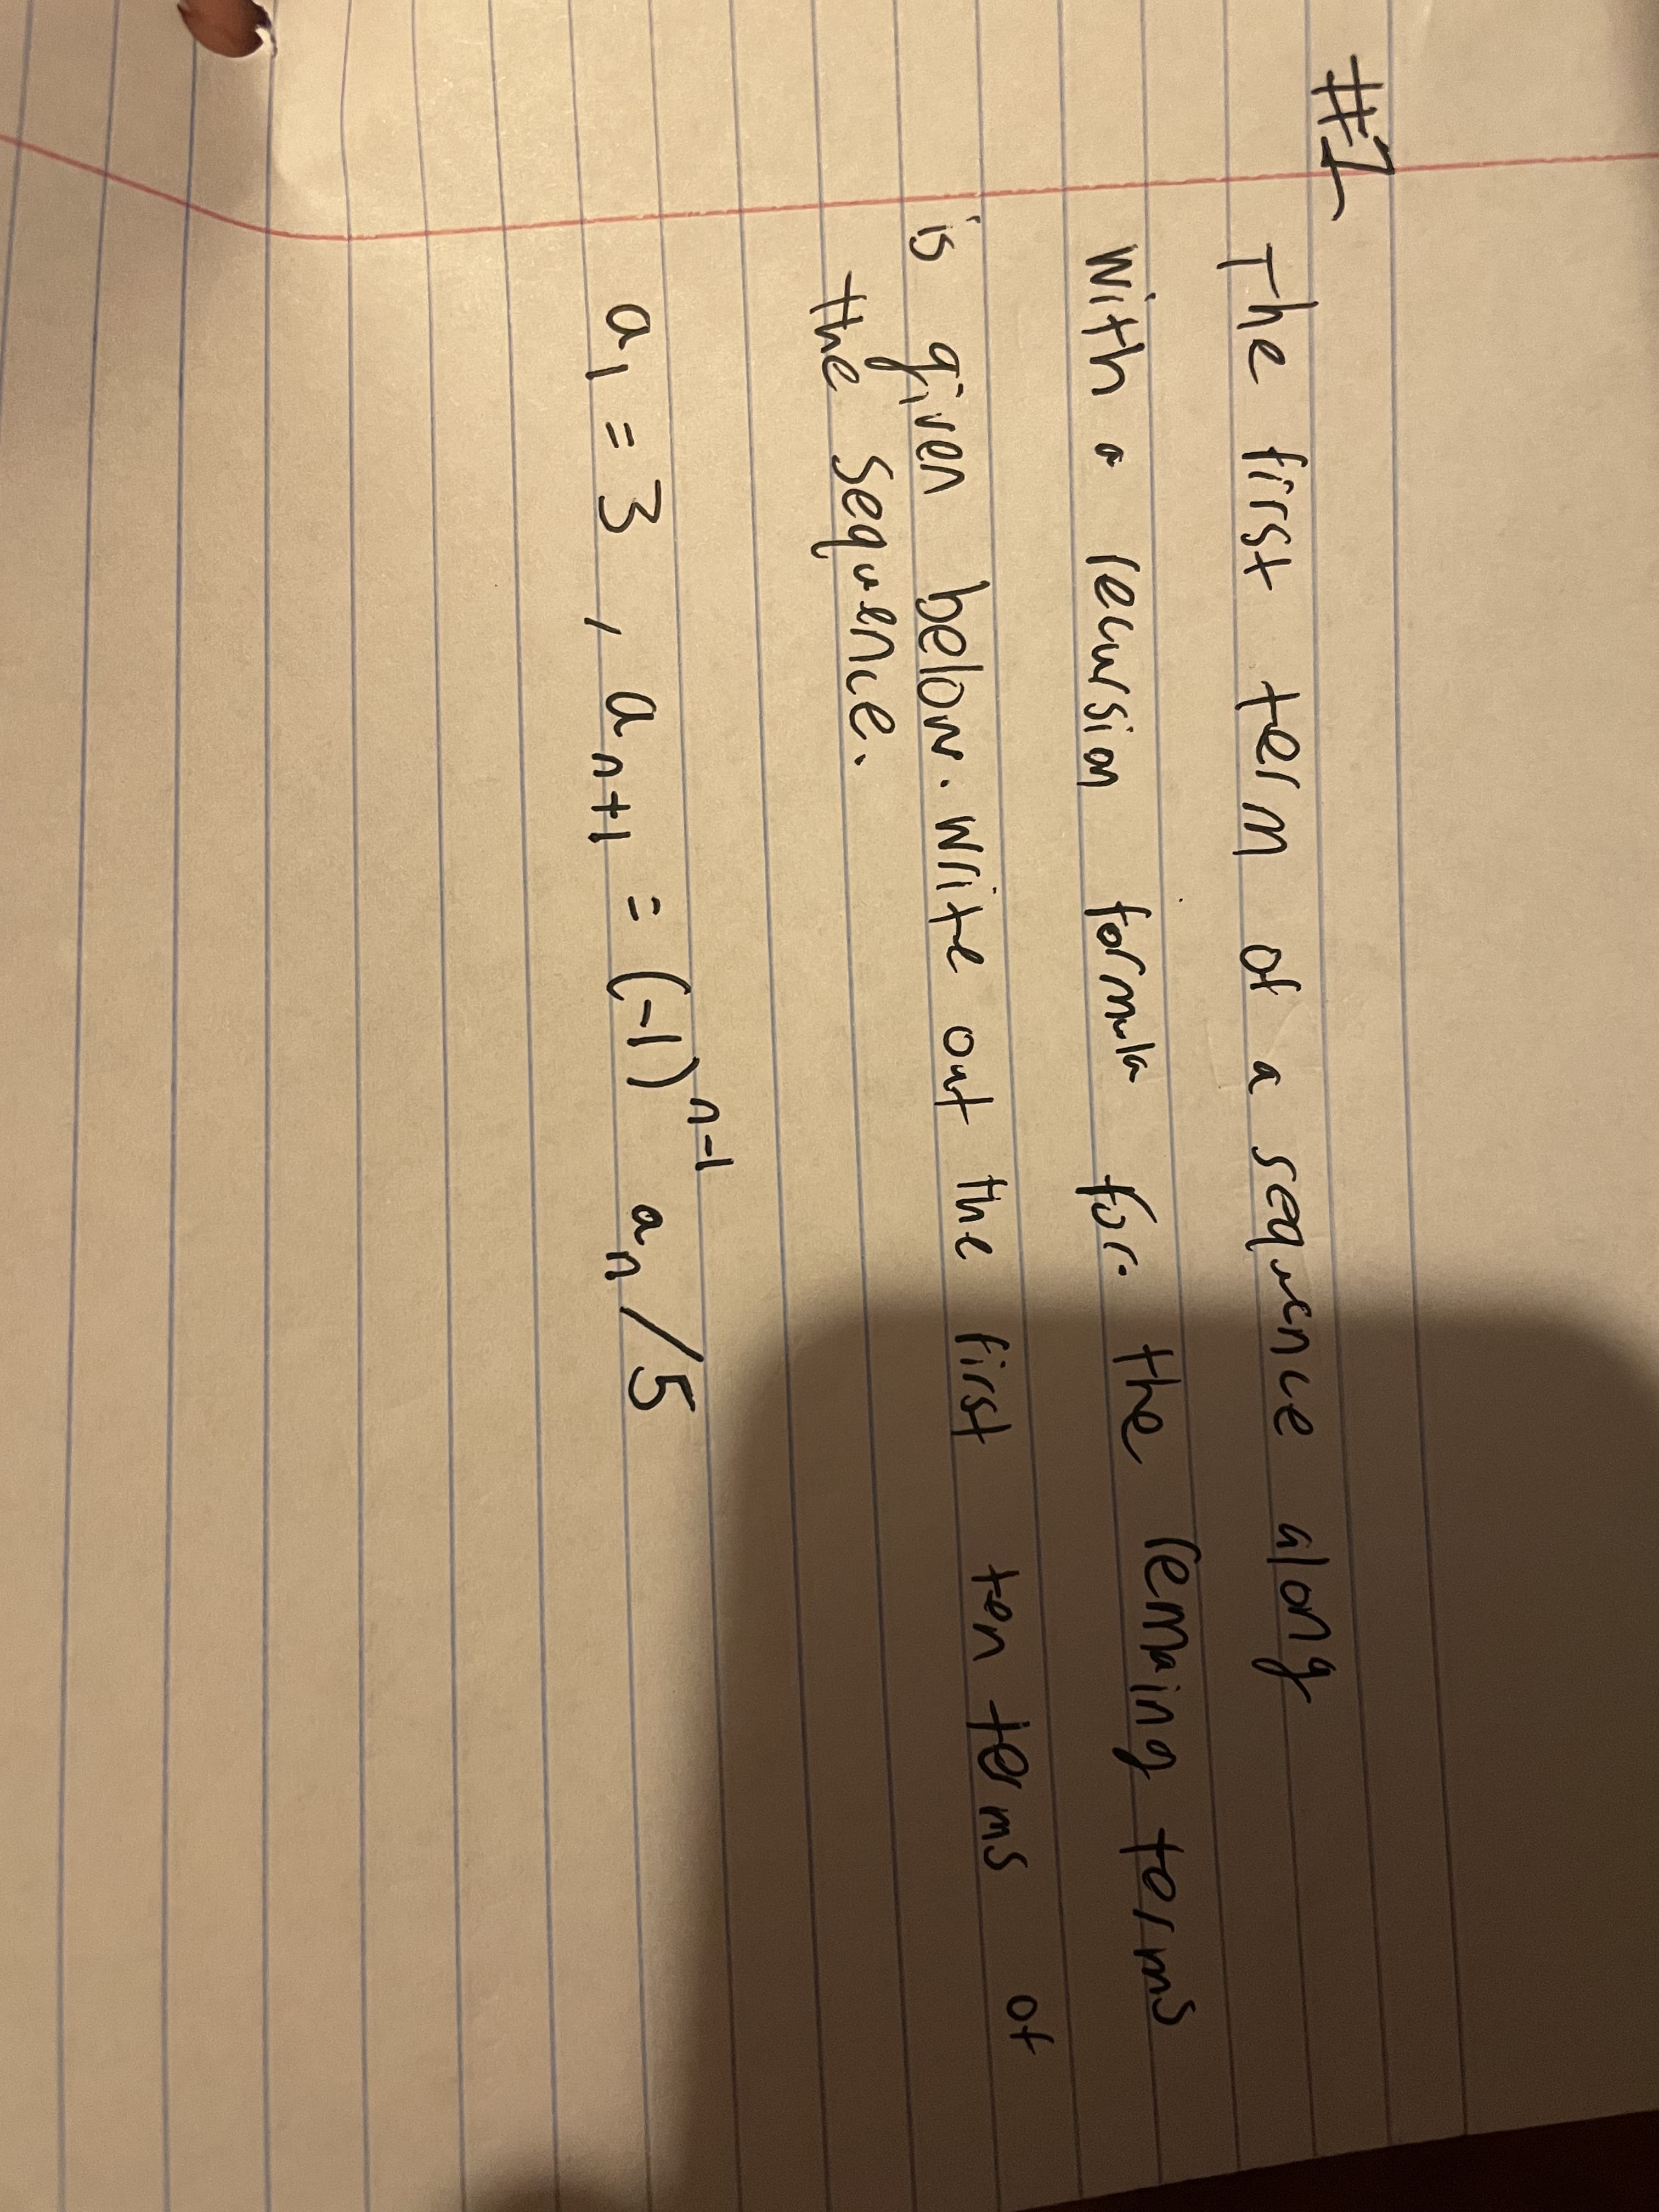 #1
The first term of a sequence along
with a recursion formula for. the remaining terms
is given below. write out the first ten terms of
the sequence.
a₁ = 3 , aₙ₊₁ = (-1)ⁿ⁻¹ aₙ / 5